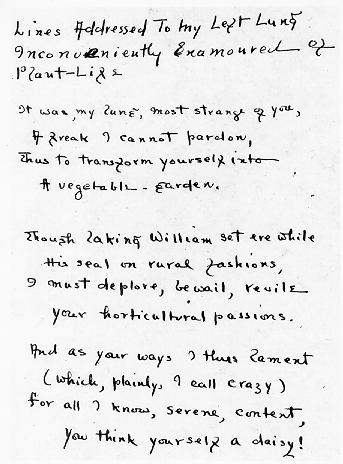 Lines Addressed To My Left Lung
Inconveniently Enamoured of
Plant-Life
It was, my lung, most strange of you,
A freak I cannot pardon,
Thus to transform yourself into
A vegetable-garden.
Though laking William set erewhile
His seal on rural fashions,
I must deplore, bewail, revile
Your horticultural passions.
And as your ways I thus lament
(which, plainly, I call crazy)
For all I know, serene, content,
You think yourself a daisy!